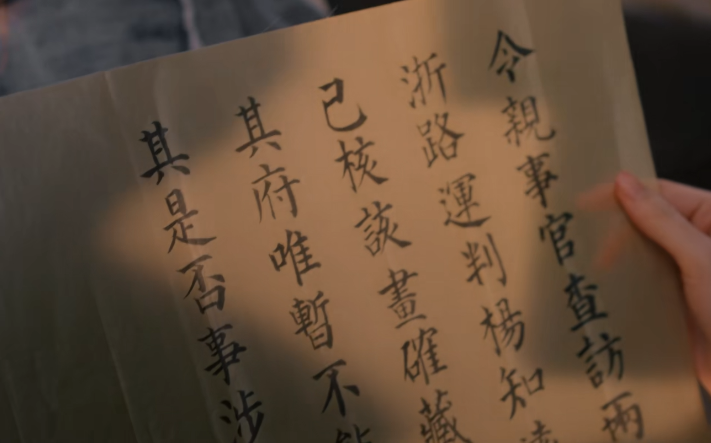 令親事官查訪兩
浙路運判楊知遠
已核該畫確藏
其府唯暫不能
其是否事涉